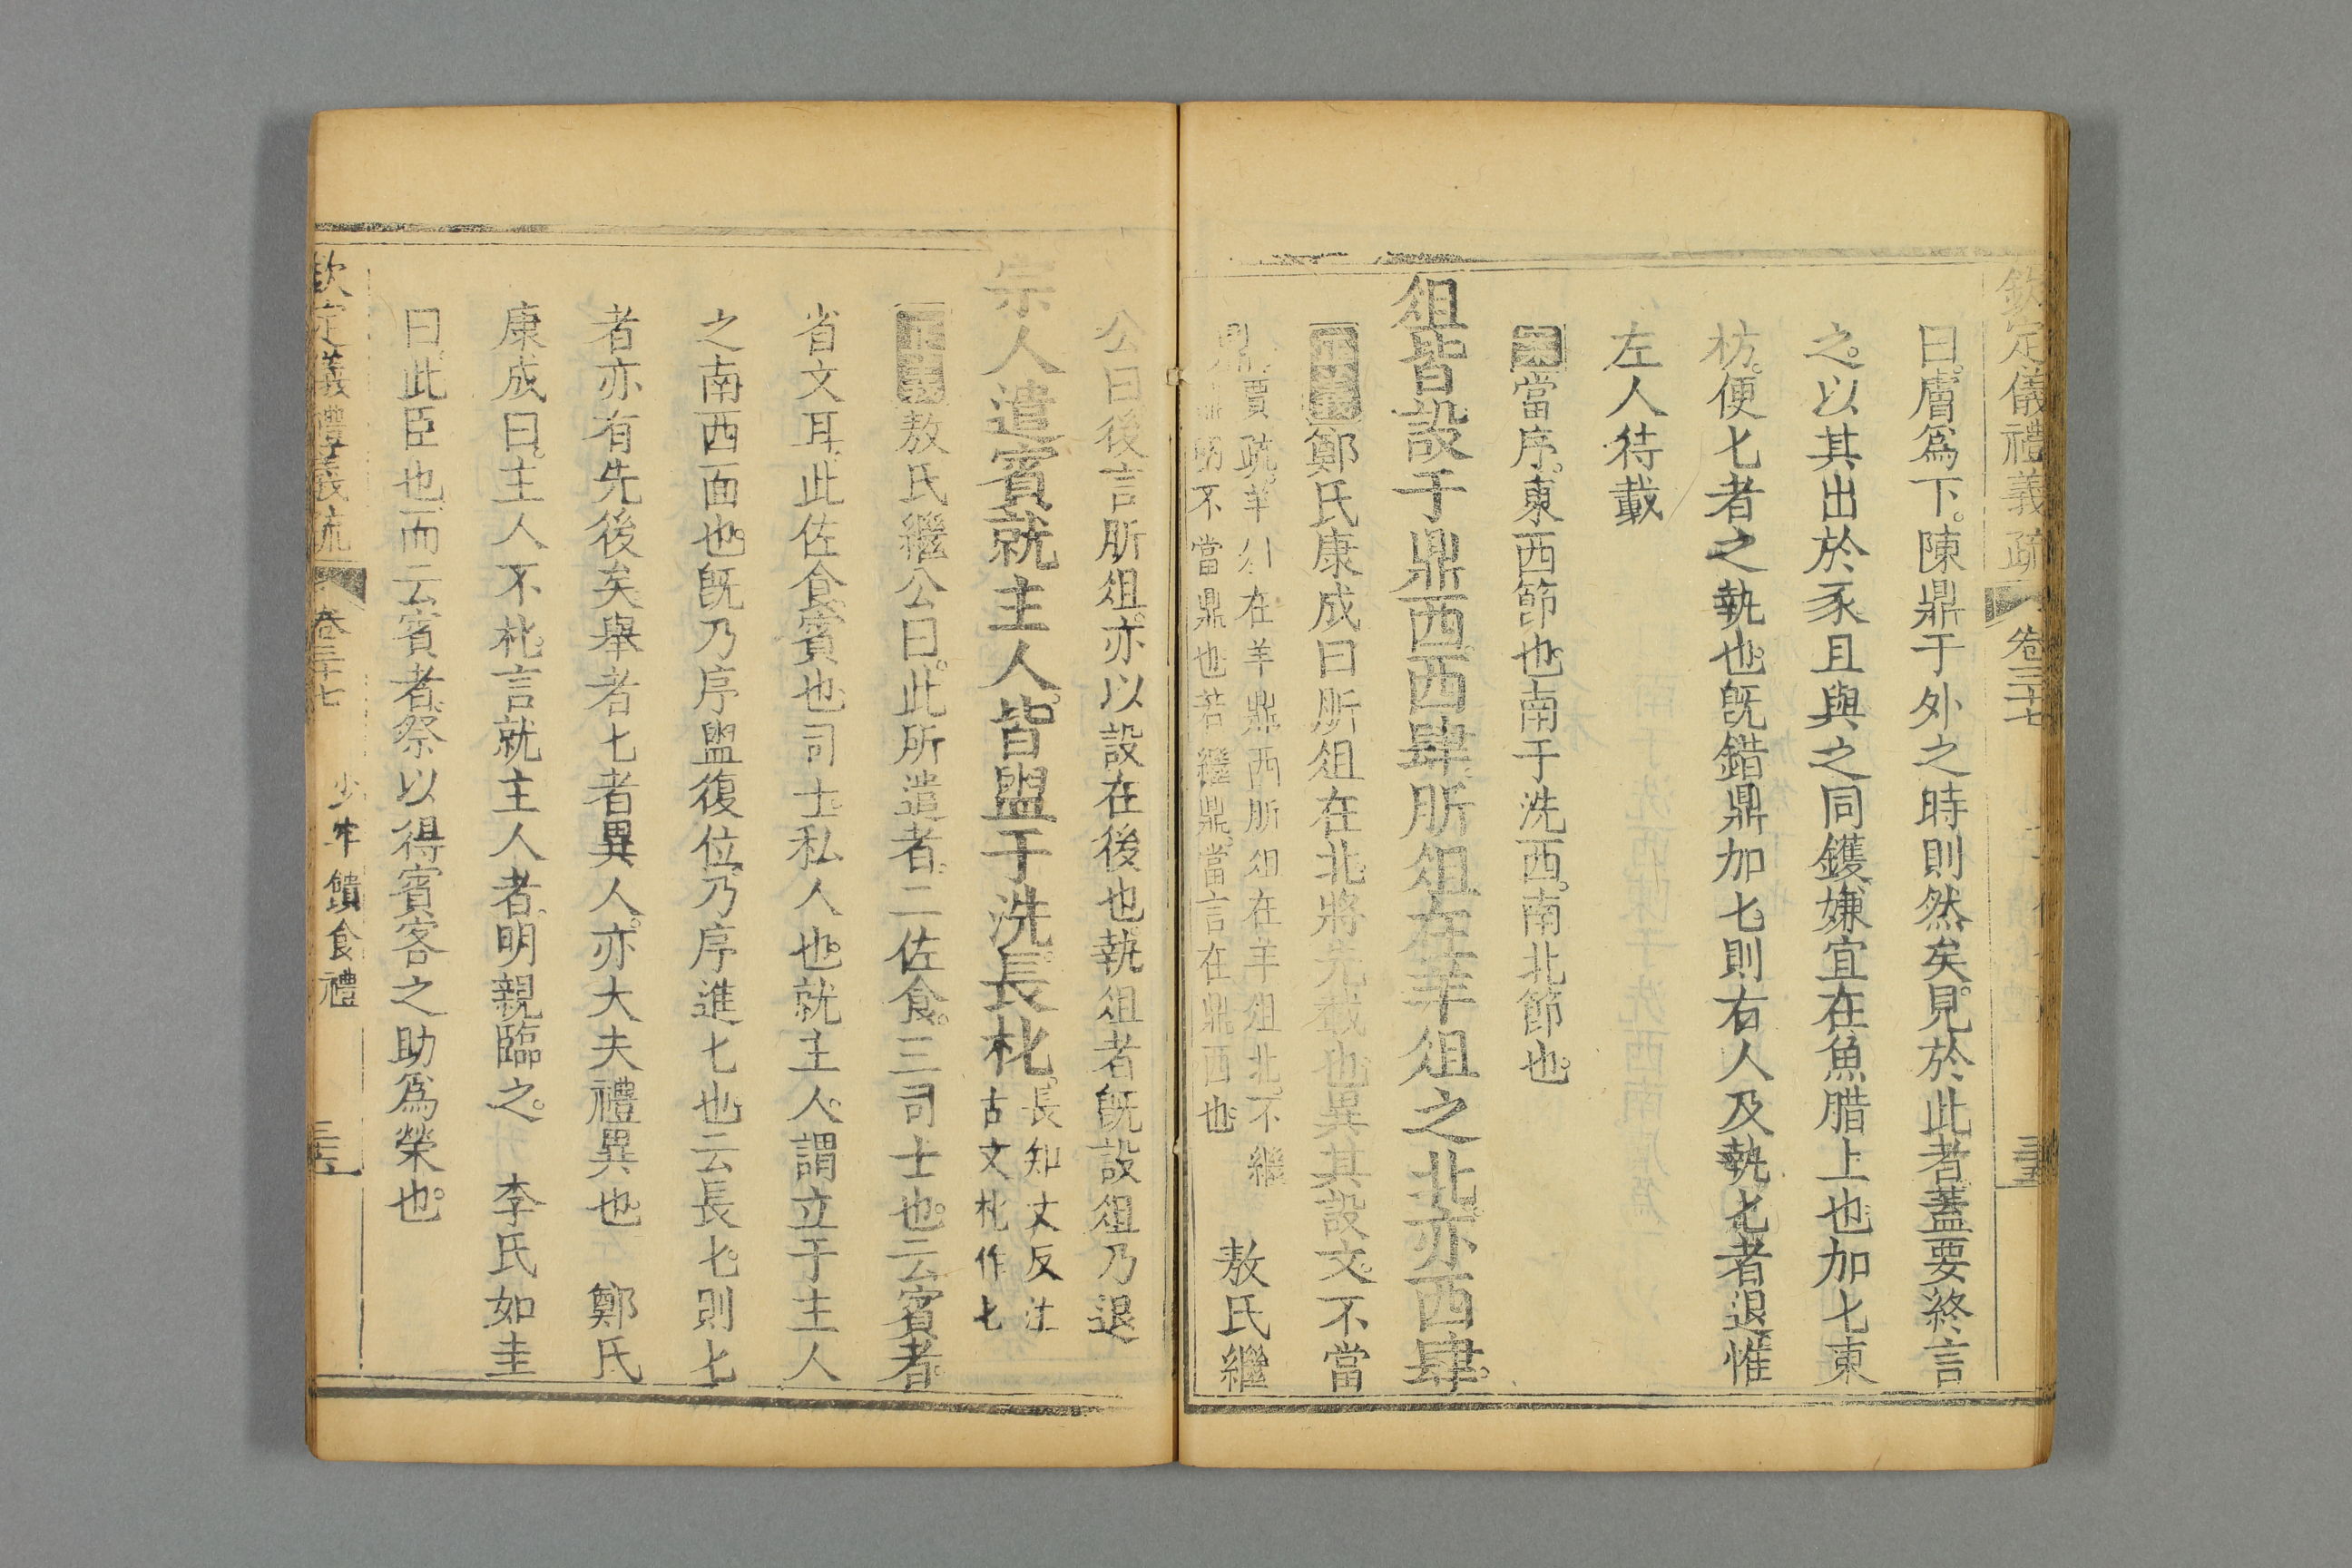 欽定儀禮義疏 卷三十七
曰。膚爲下。陳鼎于外之時則然矣。見於此者蓋要終言
之。以其出於豕且與之同鑊。嫌宜在魚腊上也。加匕東
枋。便匕者之執也。既錯鼎加匕則右人及執匕者退。惟
左人待載
案當序。東西節也。南于洗西。南北節也。
俎皆設于鼎西。西肆。肵俎在羊俎之北。亦西肆。
正義鄭氏康成曰肵俎在北。將先載也。異其設文。不當
鼎。賈疏。羊俎在羊鼎西肵俎在羊俎北。不繼
鼎明不當鼎也若繼鼎。當言在鼎西也。
敖氏繼
公曰後言肵俎。亦以設在後也。執俎者既設俎乃退
宗人遣賓就主人。皆盥于洗。長朼。
長知丈反注
古文朼作匕
正義敖氏繼公曰。此所遣者。二佐食。三司士也。云賓者。
省文耳。此佐食賓也。司士私人也。就主人。謂立于主人
之南西面也。既乃序盥復位。乃序進匕也。云長匕。則匕
者亦有先後矣。舉者匕者異人。亦大夫禮異也。 鄭氏
康成曰。主人不朼。言就主人者。明親臨之。 李氏如圭
曰。此臣也。而云賓者。祭以得賓客之助爲榮也。
欽定儀禮義疏 卷三十七 少牢饋食禮 三五